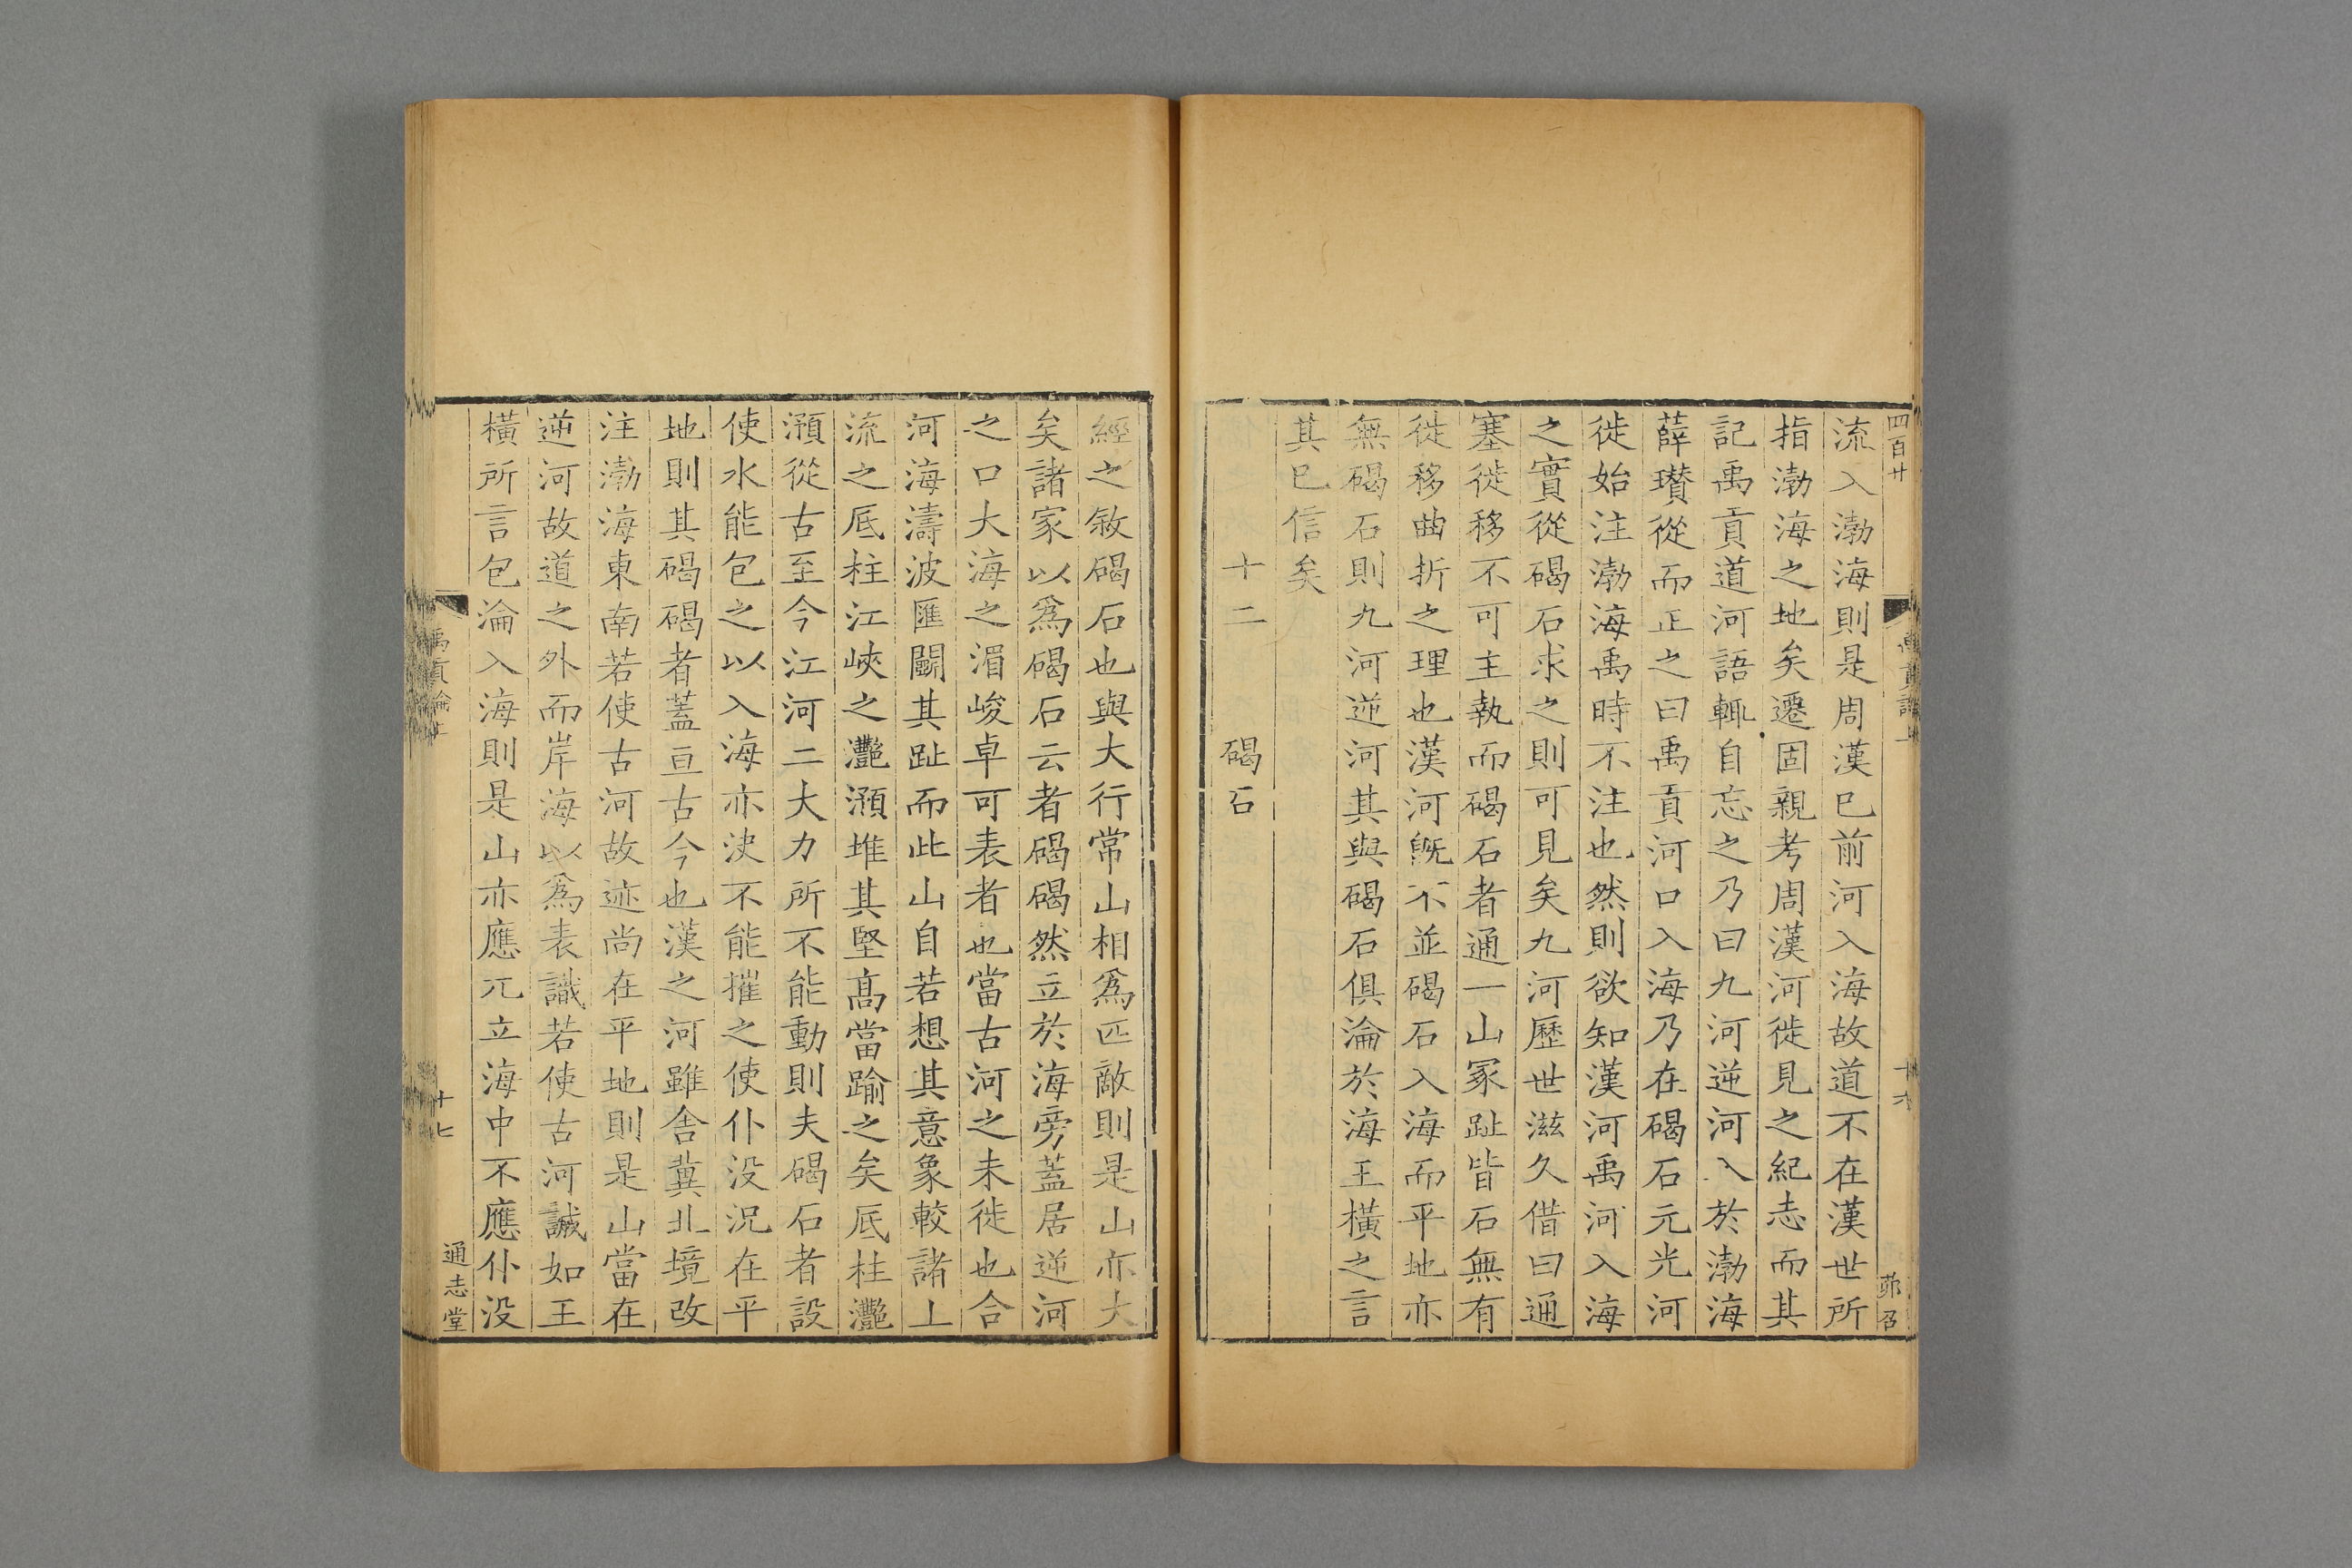 四百廿
禹貢論上
十六
流入渤海則是周漢巳前河入海故道不在漢世所
指渤海之地矣遷固親考周漢河徙見之紀志而其
記禹貢道河語輒自忘之乃曰九河逆河入於渤海
薛瓚從而正之曰禹貢河口入海乃在碣石元光河
徙始注渤海禹時不注也然則欲知漢河禹河入海
之實從碣石求之則可見矣九河歷世滋久借曰通
塞徙移不可主執而碣石者通一山冢趾皆石無有
徙移曲折之理也漢河旣不並碣石入海而平地亦
無碣石則九河逆河其與碣石俱淪於海王橫之言
其巳信矣
十二　碣石
經之敘碣石也與大行常山相爲匹敵則是山亦大
矣諸家以爲碣石云者碣碣然立於海旁蓋居逆河
之口大海之湄峻卓可表者也當古河之未徙也合
河海濤波匯鬭其趾而此山自若想其意象較諸上
流之厎柱江峽之灧澦堆其堅髙當踰之矣厎柱灧
澦從古至今江河二大力所不能動則夫碣石者設
使水能包之以入海亦決不能摧之使仆没況在平
地則其碣碣者蓋亘古今也漢之河雖舍冀北境改
注渤海東南若使古河故迹尚在平地則是山當在
逆河故道之外而岸海以爲表識若使古河誠如王
橫所言包淪入海則是山亦應兀立海中不應仆没
禹貢論上
十七
通志堂